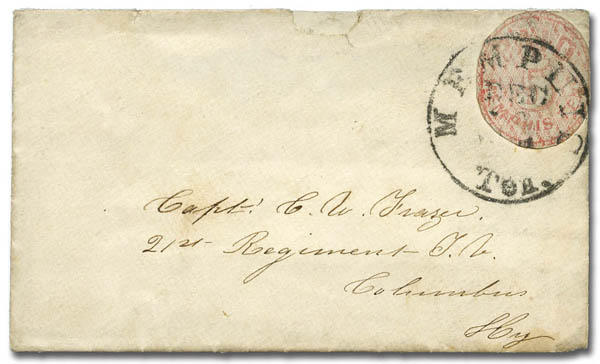 MEMPHIS
DEC
Ten.
Capt. C. W. Frazer.
21st Regiment T. V.
Columbus
Ky